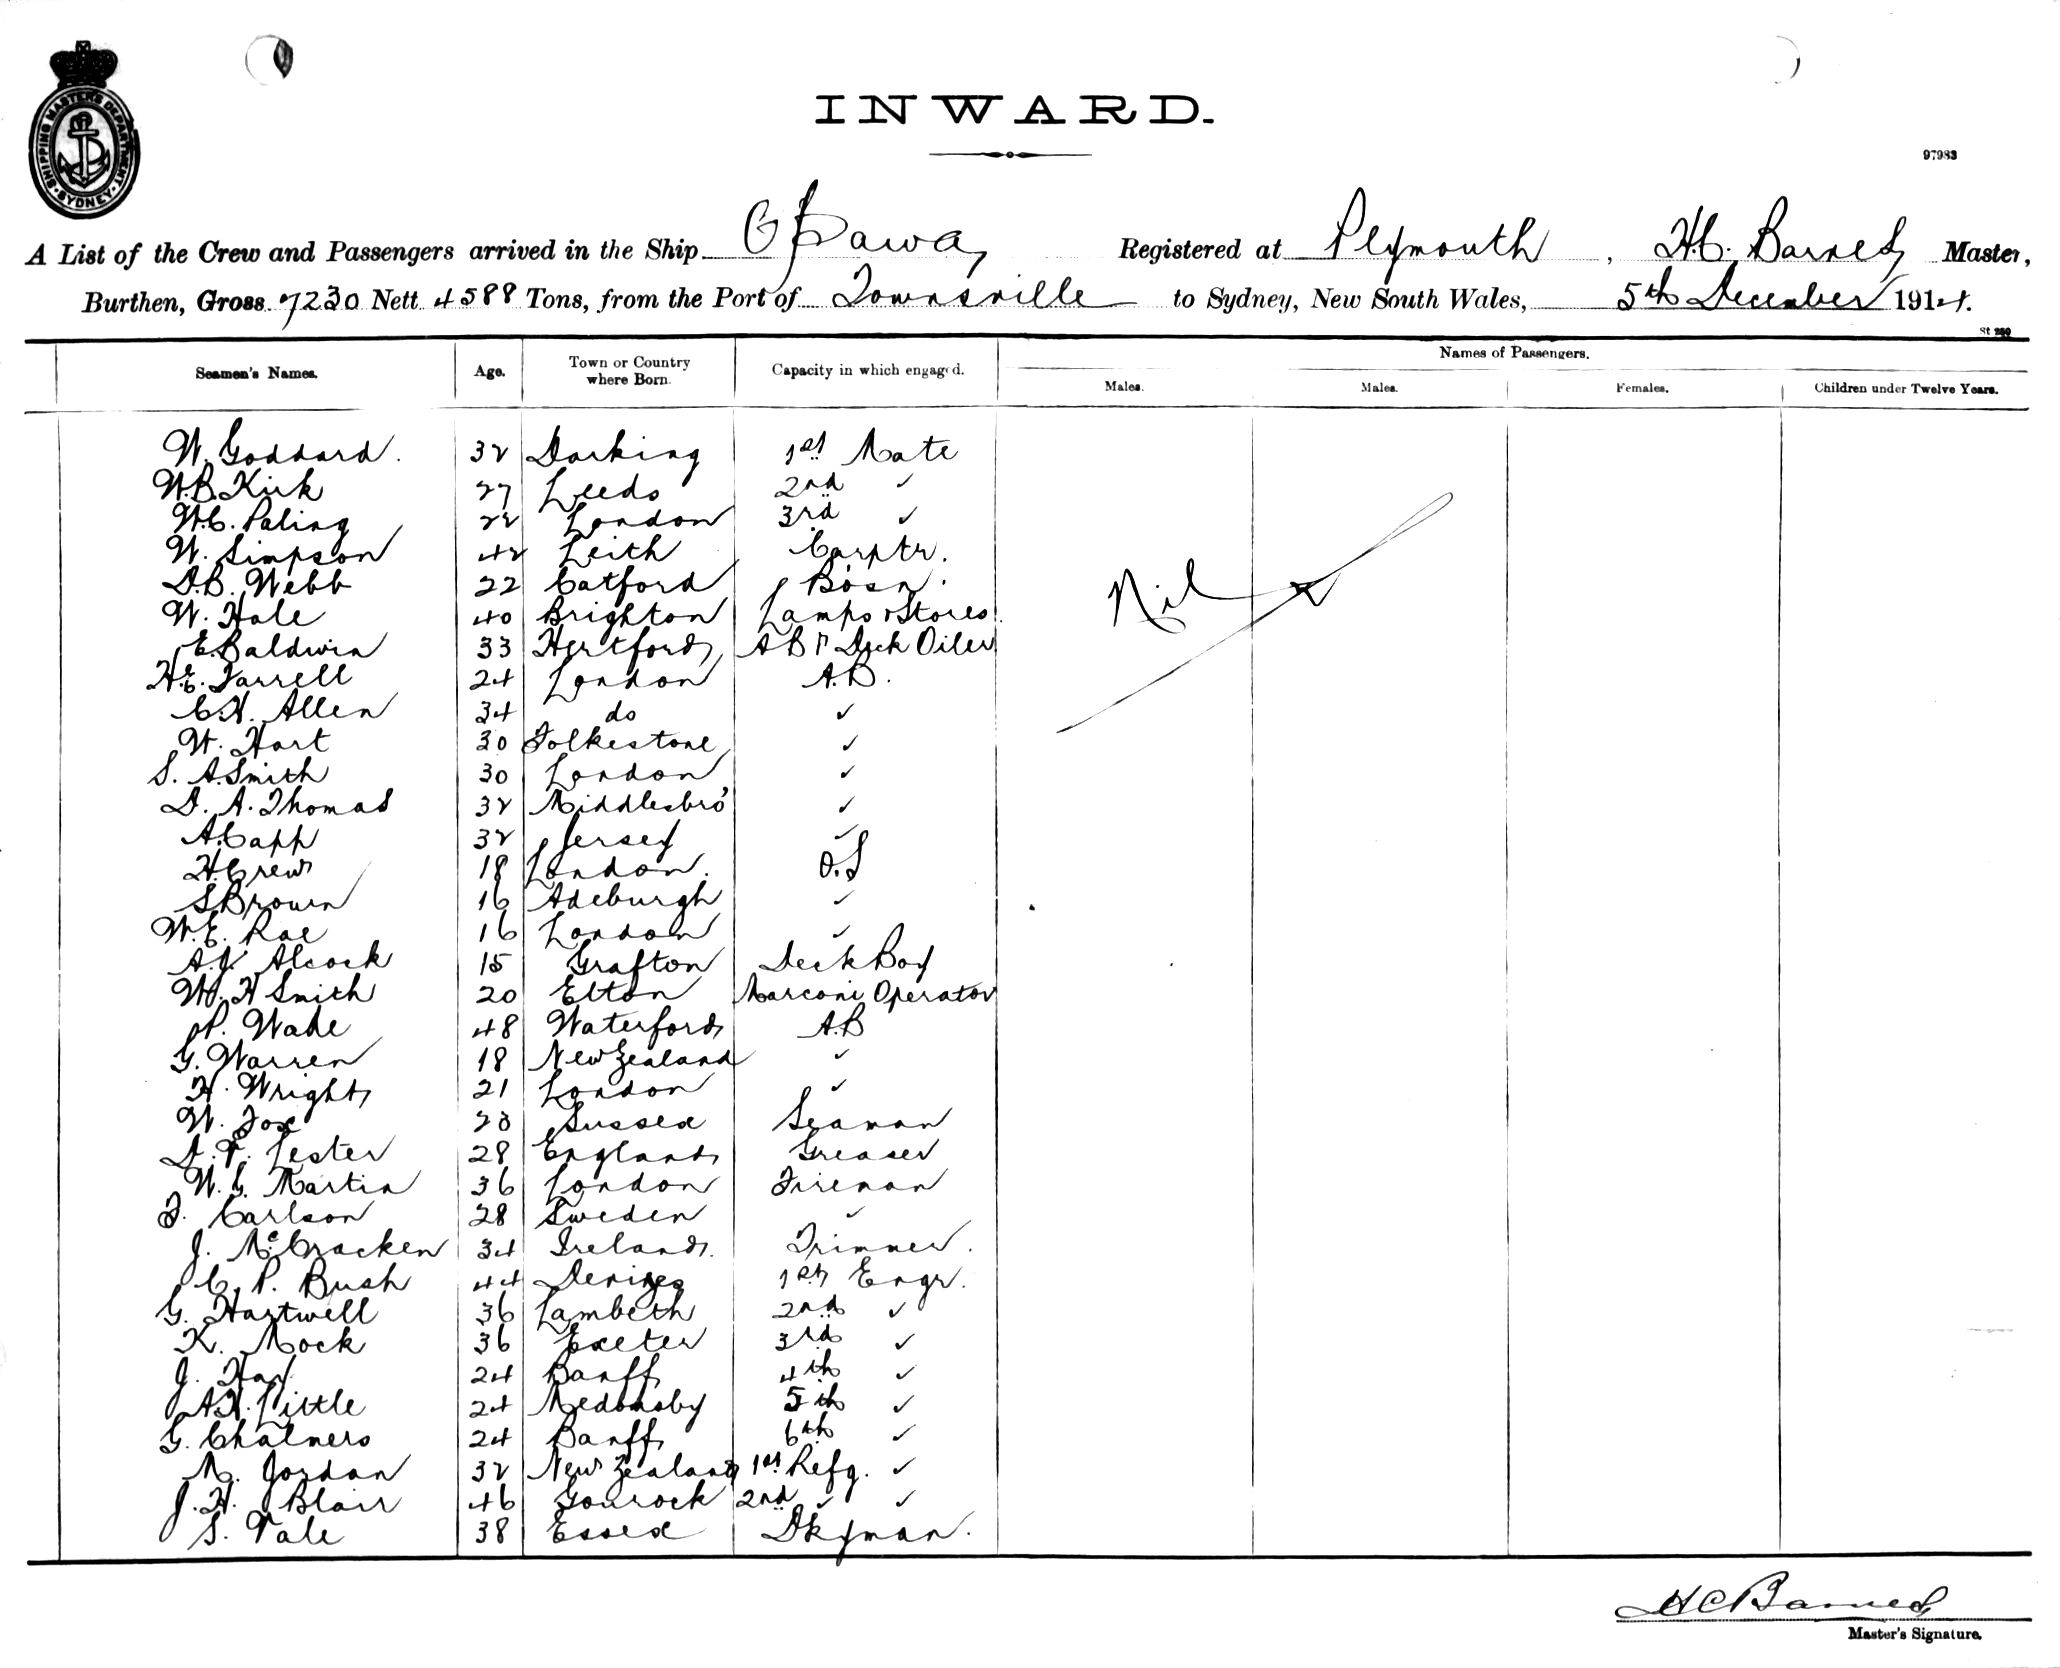 SHIPPING MASTER'S DEPARTMENT. SYDNEY
INWARD.
97983
A List of the Crew and Passengers arrived in the Ship Opawa, Registered at Plymouth, H.C. Barnes Master,
Burthen, Gross 7230 Nett 4588 Tons, from the Port of Townsville to Sydney, New South Wales, 5th December 1914.
St 280
Seamen's Names. Age. Town or Country where Born. Capacity in which engaged. Names of Passengers.
Males. Males. Females. Children under Twelve Years.
W. Goddard. 32 Dorking 1st Mate
W.B. Kirk 27 Leeds 2nd ✓
W.C. Paling 22 London 3rd ✓
W. Simpson 42 Leith Carptr.
D.B. Webb 22 Catford Bosn.
W. Hole 40 Brighton Lamps & Stores
E. Baldwin 33 Hertford AB & Deck Oiler
H.E. Farrell 24 London A.B.
C.H. Allen 34 do ✓
W. Hart 30 Folkestone ✓
S. A. Smith 30 London ✓
D. A. Thomas 32 Middlesbro' ✓
A. Capp 32 Jersey ✓
H. Crew 18 London. O.S
S Brown 16 Adeburgh ✓
W.E. Rae 16 London ✓
A.J. Alcock 15 Grafton Deck Boy
W. H Smith 20 Elton Marconi Operator
P. Wade 48 Waterford A.B
G. Warren 18 New Zealand ✓
H. Wright 21 London ✓
W. Fox 23 Sussex Seaman
D. F. Lester 28 England Greaser
W. G. Martin 36 London Fireman
F. Carlson 28 Sweden ✓
J. McCracken 34 Ireland. Trimmer.
C. P. Bush 44 Devizes 1st Engr.
G. Hartwell 36 Lambeth 2nd ✓
K. Mock 36 Exeter 3rd ✓
J. Hay 24 Banff 4th ✓
A.H. Little 24 Medomsby 5th ✓
G. Chalmers 24 Banff 6th ✓
M. Jordan 32 New Zealand 1st Refg. ✓
J. H. Blair 46 Gourock 2nd ✓ ✓
S. Vale 38 Essex Dkyman.
Nil
H C Barnes
Master's Signature.